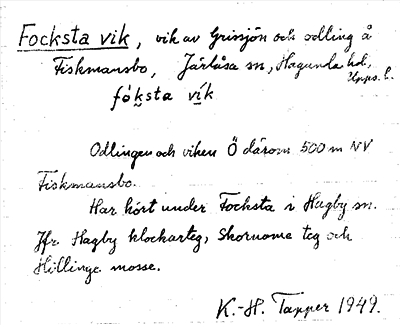 Focksta vik, vik av Grissjön och odling å
Fiskmansbo, Järlåsa sn, Hagunda hd,
Upps. l.
fóksta vik
Odlingen och viken Ö därom 500 m NV
Fiskmansbo.
Har hört under Focksta i Hagby sn.
Jfr Hagby klockarteg, Skornome teg och
Hillinge mosse.
K.-H. Tapper 1949.